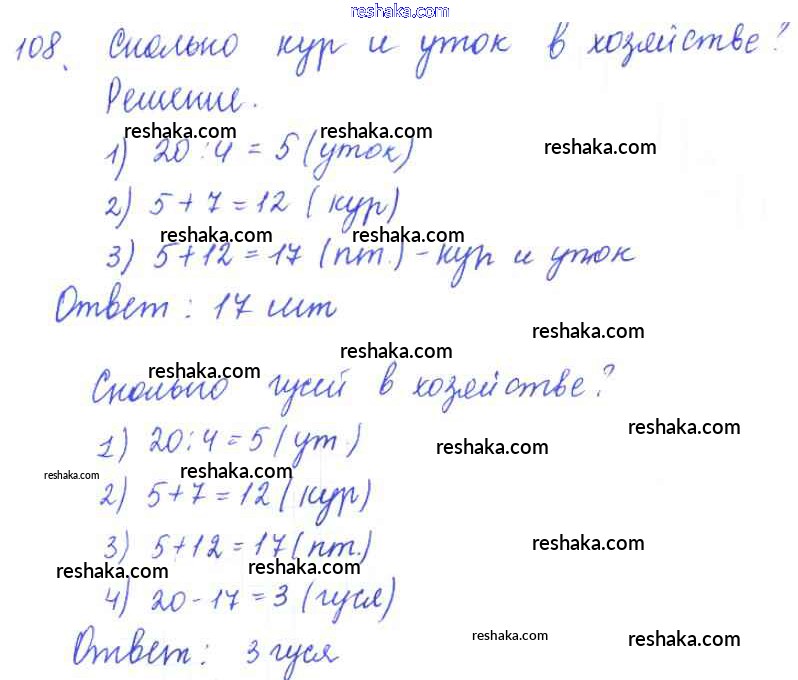 reshaka.com
108. Сколько кур и уток в хозяйстве?
Решение.
reshaka.com reshaka.com
1) 20:4=5 (уток) reshaka.com
2) 5+7=12 (кур)
reshaka.com reshaka.com
3) 5+12=17 (пт.) - кур и уток
Ответ: 17 шт
reshaka.com
reshaka.com
reshaka.com
Сколько гусей в хозяйстве?
reshaka.com
1) 20:4=5 (ут.) reshaka.com
reshaka.com reshaka.com
2) 5+7=12 (кур)
3) 5+12=17 (пт.) reshaka.com
reshaka.com reshaka.com
4) 20-17=3 (гуся)
reshaka.com reshaka.com
Ответ: 3 гуся